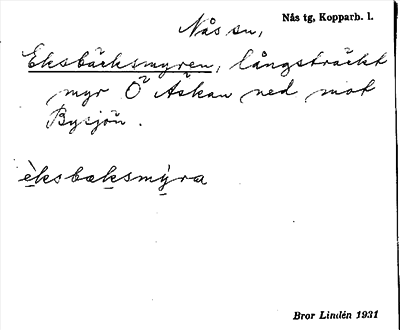 Nås sn,
Nås tg, Kopparb. l.
Eksbäcksmyren, långsträckt
myr Ö Åskan ned mot
Bysjön.
èksbæksmýra
Bror Lindén 1931